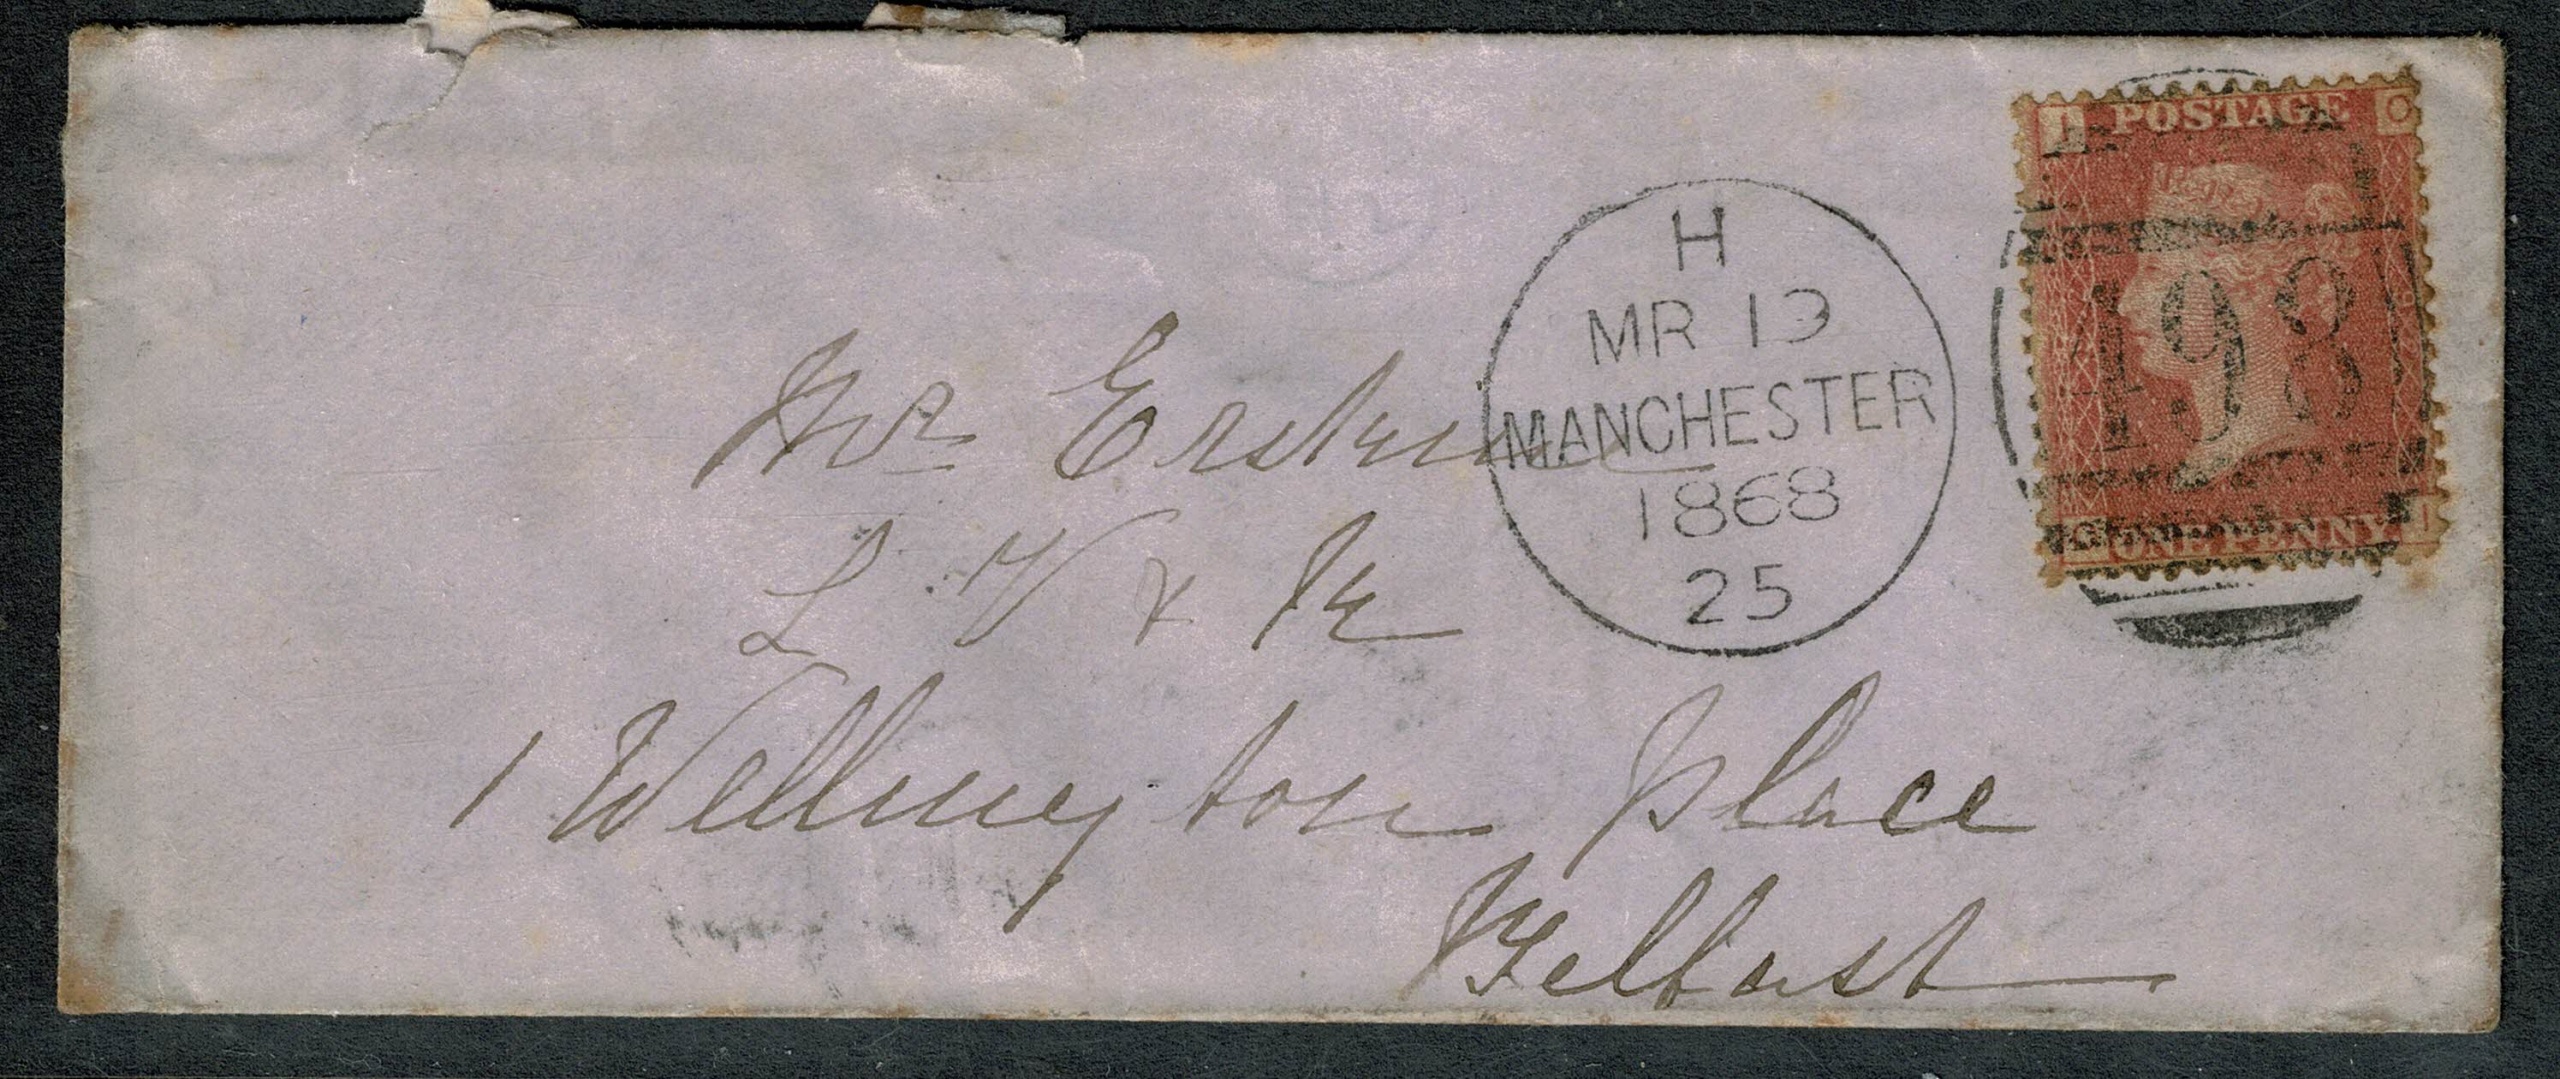 I POSTAGE O
498
O ONE PENNY I
H
MR 13
MANCHESTER
1868
25
Mr Erskine
L V &
1 Wellington place
Belfast